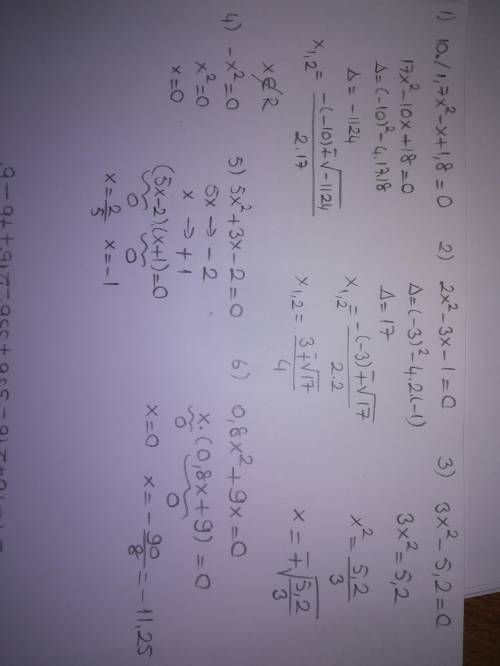 1) 10./1,7x²-x+1,8=0
17x²-10x+18=0
Δ=(-10)²-4.17.18
Δ=-1124
x₁,₂= -(-10)∓√-1124 / 2.17
x∉R
2) 2x²-3x-1=0
Δ=(-3)²-4.2.(-1)
Δ=17
x₁,₂= -(-3)∓√17 / 2.2
x₁,₂= 3∓√17 / 4
3) 3x²-5,2=0
3x²=5,2
x²= 5,2/3
x=∓√5,2/3
4) -x²=0
x²=0
x=0
5) 5x²+3x-2=0
5x → -2
x → +1
(5x-2)(x+1)=0
0 0
x=2/5 x=-1
6) 0,8x²+9x=0
x.(0,8x+9)=0
0 0
x=0 x=-90/8=-11,25